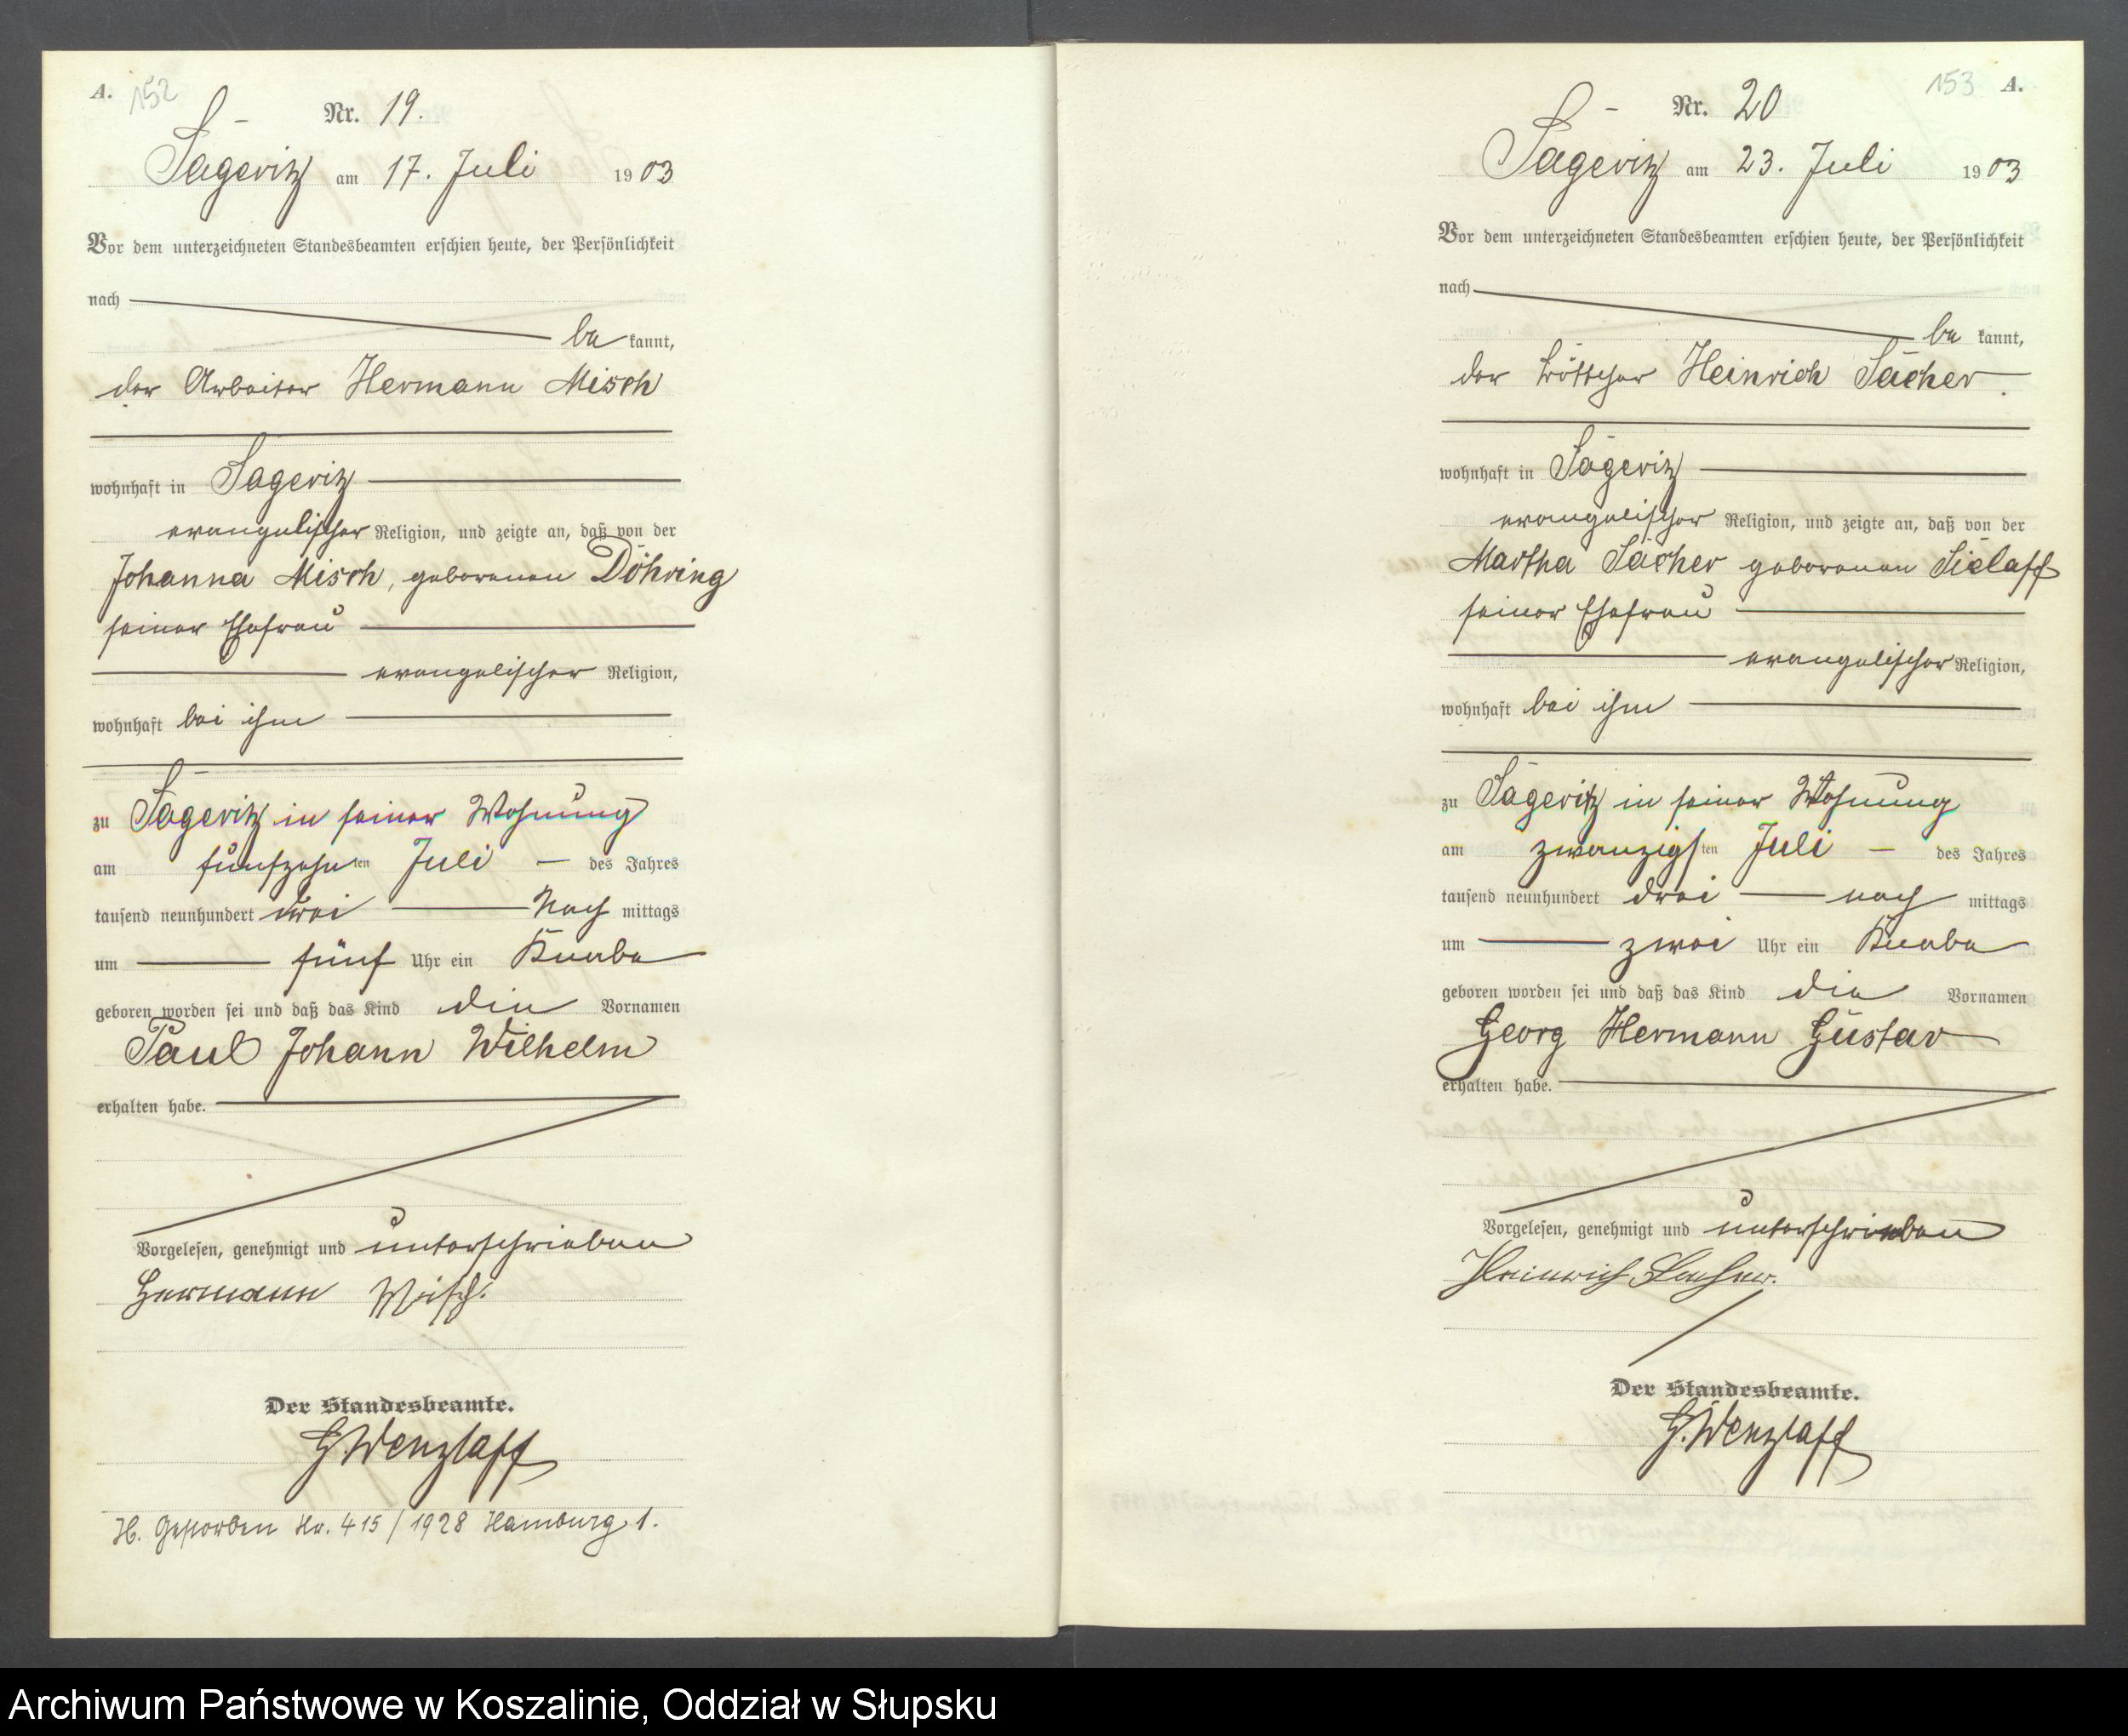 A. 152
Nr. 19.
Sageritz am 17. Juli 1903
Vor dem unterzeichneten Standesbeamten erschien heute, der Persönlichkeit
nach
be kannt,
der Arbeiter Hermann Misch
wohnhaft in Sageritz
evangelischer Religion, und zeigte an, daß von der
Johanna Misch, geborenen Döhring
seiner Ehefrau
evangelischer Religion,
wohnhaft bei ihm
zu Sageritz in seiner Wohnung
am fünfzehnten Juli des Jahres
tausend neunhundert drei Nach mittags
um fünf Uhr ein Knabe
geboren worden sei und daß das Kind die Vornamen
Paul Johann Wilhelm
erhalten habe.
Vorgelesen, genehmigt und unterschrieben
Hermann Misch.
Der Standesbeamte.
G. Wenzlaff
H. Gestorben Nr. 415/1928 Hamburg 1.
153 A.
Nr. 20
Sageritz am 23. Juli 1903
Vor dem unterzeichneten Standesbeamten erschien heute, der Persönlichkeit
nach
be kannt,
der Heinrich Sacher.
wohnhaft in Sageritz
evangelischer Religion, und zeigte an, daß von der
Martha Sacher geborenen Sielaff
seiner Ehefrau
evangelischer Religion,
wohnhaft bei ihm
zu Sageritz in seiner Wohnung
am zwanzigsten Juli des Jahres
tausend neunhundert drei nach mittags
um zwei Uhr ein Knabe
geboren worden sei und daß das Kind die Vornamen
Georg Hermann Gustav
erhalten habe.
Vorgelesen, genehmigt und unterschrieben
Heinrich Sacher.
Der Standesbeamte.
G. Wenzlaff
Archiwum Państwowe w Koszalinie, Oddział w Słupsku